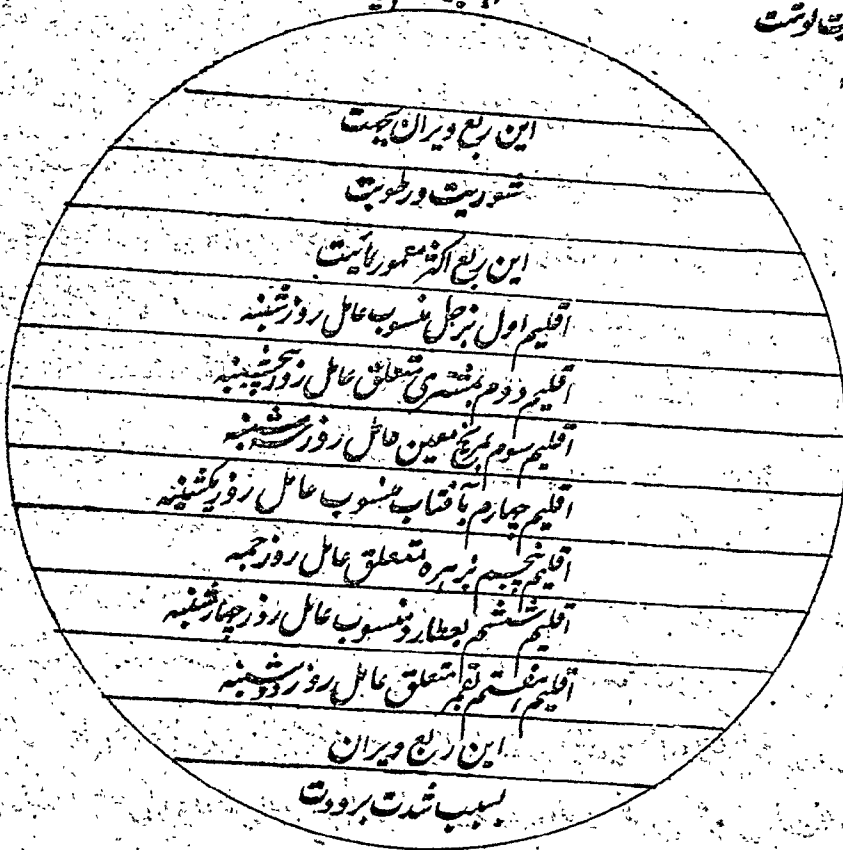 این ربع ویران بجهت
شوریت ورطوبت
این ربع اکثر معمور نیست
اقلیم اول بزحل منسوب عامل روز شنبه
اقلیم دوم بمشتری متعلق عامل روز پنجشنبه
اقلیم سوم بمریخ معین عامل روز سه شنبه
اقلیم چهارم بآفتاب منسوب عامل روز یکشنبه
اقلیم پنجم بزهره متعلق عامل روز جمعه
اقلیم ششم بعطارد منسوب عامل روز چهارشنبه
اقلیم هفتم بقمر متعلق عامل روز دوشنبه
این ربع ویران
بسبب شدت برودت